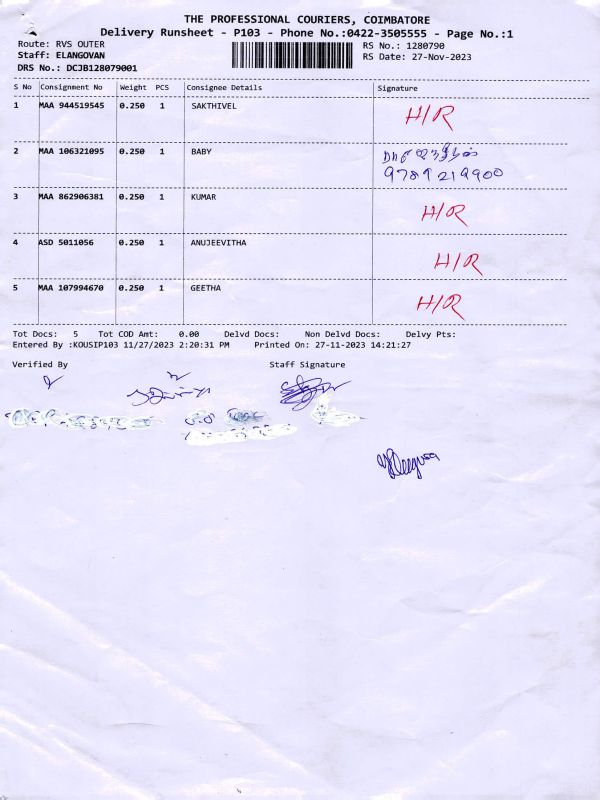 THE PROFESSIONAL COURIERS, COIMBATORE
Delivery Runsheet - P103 - Phone No.:0422-3505555 - Page No.:1
Route: RVS OUTER RS No.: 1280790
Staff: ELANGOVAN RS Date: 27-Nov-2023
DRS No.: DCJB128079001
S No Consignment No Weight PCS Consignee Details Signature
1 MAA 944519545 0.250 1 SAKTHIVEL H/R
2 MAA 106321095 0.250 1 BABY
9789219900
3 MAA 862906381 0.250 1 KUMAR H/R
4 ASD 5011056 0.250 1 ANUJEEVITHA H/R
5 MAA 107994670 0.250 1 GEETHA H/R
Tot Docs: 5 Tot COD Amt: 0.00 Delvd Docs: Non Delvd Docs: Delvy Pts:
Entered By :KOUSIP103 11/27/2023 2:20:31 PM Printed On: 27-11-2023 14:21:27
Verified By Staff Signature